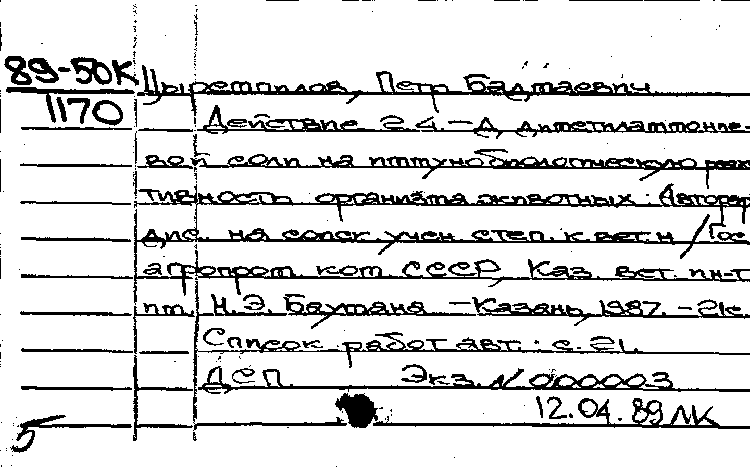 89-50К
1170
Цыремпилов, Петр Бадмаевич
Действие 2.4.-Д диметиламмоние-
вой соли на иммунобиологическую реак
тивность организма животных: Автореф
дис. на соиск. учен. степ. к. вет. н / Гос
агропром. ком СССР, Каз. вет. ин-т
им. Н.Э. Баумана -Казань, 1987. -21с.
Список работ авт.: с. 21.
ДСП. Экз. N 000003
12.04.89 ЛК
5